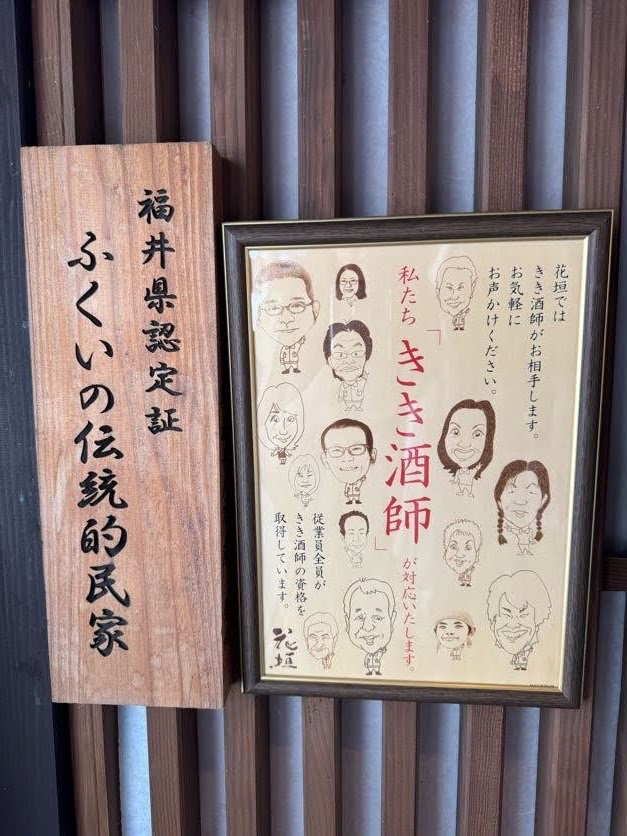 福井県認定証
ふくいの伝統的民家
花垣では
きき酒師がお相手します。
お気軽に
お声かけください。
私たち「きき酒師」が対応いたします。
従業員全員が
きき酒師の資格を
取得しています。
花垣